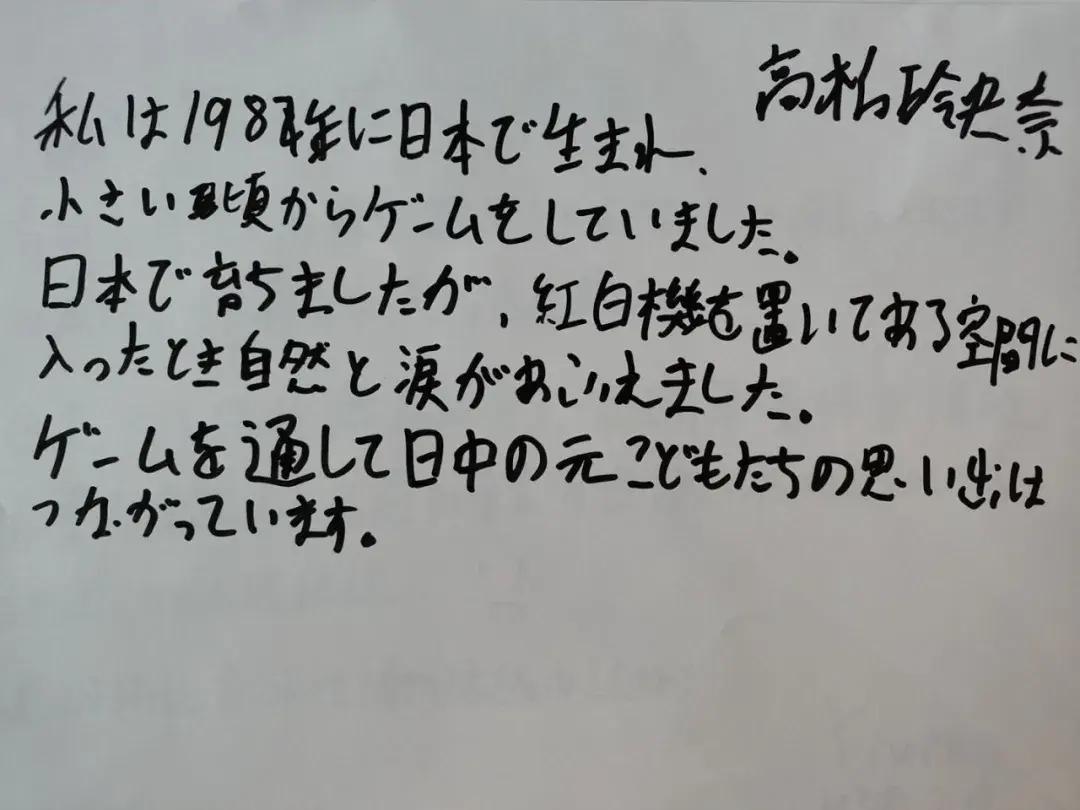 高松玲央奈
私は1987年に日本で生まれ、
小さい頃からゲームをしていました。
日本で育ちましたが、紅白機を置いてある空間に
入ったとき自然と涙があふれえました。
ゲームを通して日中の元こどもたちの思い出は
つながっています。